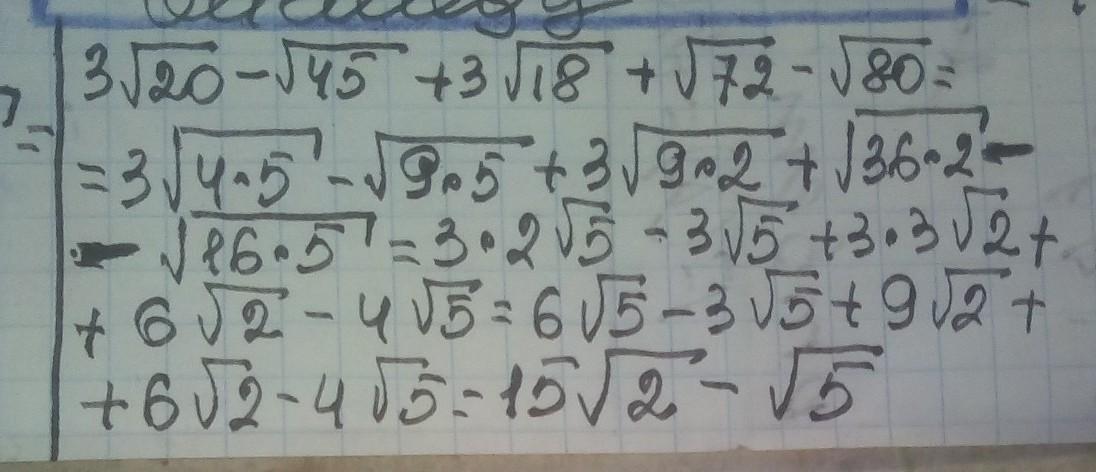 3√20 - √45 + 3√18 + √72 - √80 =
= 3√4·5 - √9·5 + 3√9·2 + √36·2 -
- √16·5 = 3·2√5 - 3√5 + 3·3√2 +
+ 6√2 - 4√5 = 6√5 - 3√5 + 9√2 +
+ 6√2 - 4√5 = 15√2 - √5